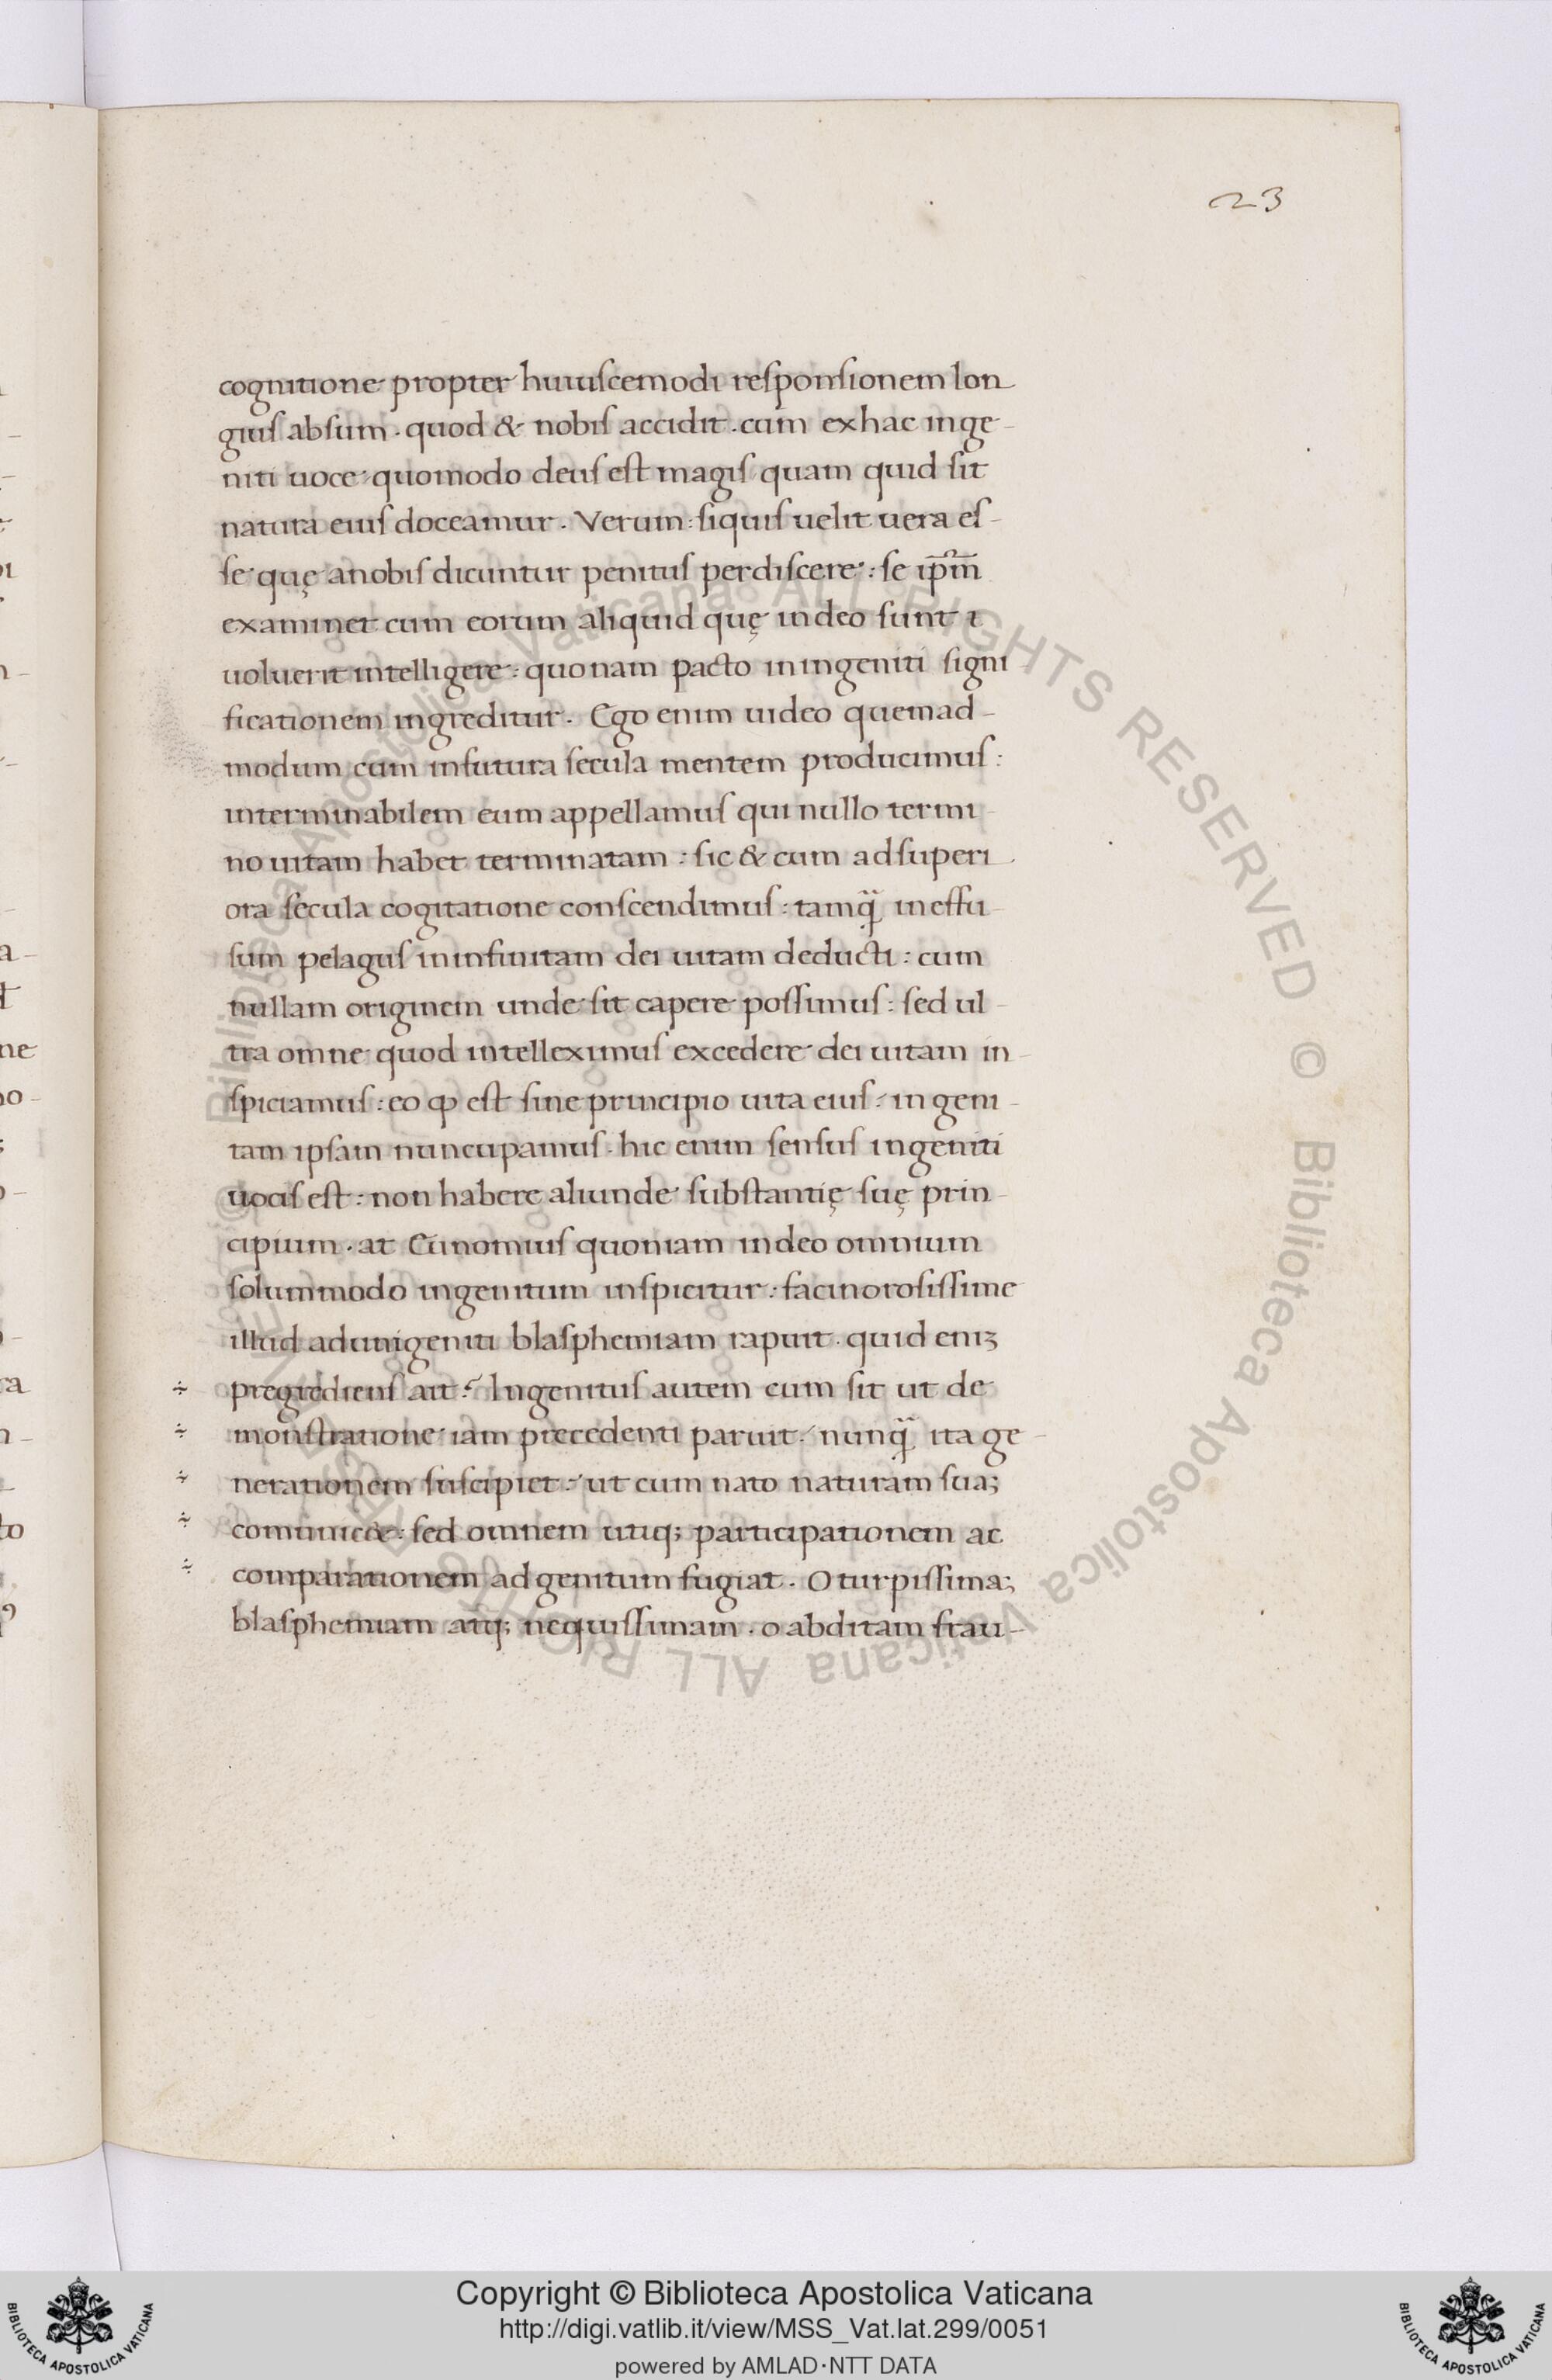 23
cognitione propter huiuscemodi responsionem lon
gius absum . quod & nobis accidit . cum ex hac inge-
niti uoce quomodo deus est magis quam quid sit
natura eius doceamur . Verum : siquis uelit uera es-
se quę anobis dicuntur penitus perdiscere : se ip̄m̄
examinet cum eorum aliquid quę indeo sunt
uoluerit intelligere : quonam pacto in ingeniti signi-
ficationem ingreditur . Ego enim uideo quemad-
modum cum infutura secula mentem producimus :
interminabilem eum appellamus qui nullo termi-
no uitam habet terminatam : sic & cum adsuperi-
ora secula cogitatione conscendimus : tamq̃ ineffu-
sum pelagus ininfinitam dei uitam deducti : cum
nullam originem unde sit capere possimus : sed ul-
tra omne quod intelleximus excedere dei uitam in-
spiciamus : eo ꝙ est sine principio uita eius : ingeni-
tam ipsam nuncupamus . hic enim sensus ingeniti
uocis est : non habere aliunde substantię suę prin-
cipium . at Eunomius quoniam indeo omnium
solummodo ingenitum inspicitur : facinorosissime
illud adunigeniti blasphemiam rapuit . quid eniꝫ
÷ pregrediens ait ? Ingenitus autem cum sit ut de
÷ monstratione iam precedenti paruit / nunq̃ ita ge-
÷ nerationem suscipiet : ut cum nato naturam sua;
÷ comunic& : sed omnem utiq; participationem ac
÷ comparationem ad genitum fugiat . O turpissima;
blasphemiam atq; nequissimam . o abditam frau-
Copyright © Biblioteca Apostolica Vaticana
http://digi.vatlib.it/view/MSS_Vat.lat.299/0051
powered by AMLAD·NTT DATA
BIBLIOTECA APOSTOLICA VATICANA
BIBLIOTECA APOSTOLICA VATICANA